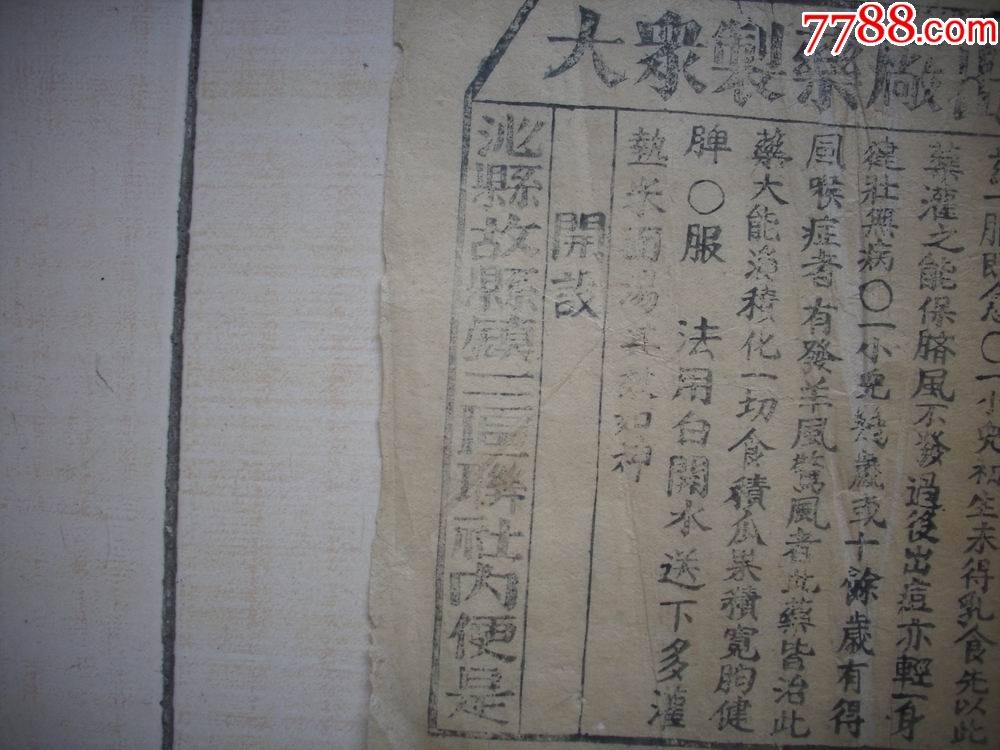 7788.com
大衆製藥廠
一服即愈〇一小兒初生未得乳食先以此
藥灌之能保臍風不發過後出痘亦輕一身
健壯無病〇一小兒幾歲或十餘歲有得
風喉症者有發羊風驚風者此藥皆治此
藥大能消積化一切食積瓜果積寬胸健
脾〇服 法用白開水送下多灌
熱米面湯其效如神
開設
沁縣故縣鎮三區聯社内便是